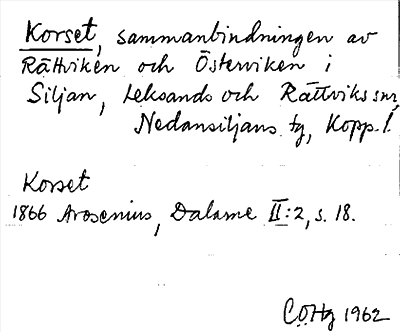 Korset, sammanbindningen av
Rättviken och Österviken i
Siljan, Leksands och Rättviks snr,
Nedansiljans tg, Kopp. l.
Korset
1866 Arosenius, Dalarne II:2, s. 18.
COHg 1962